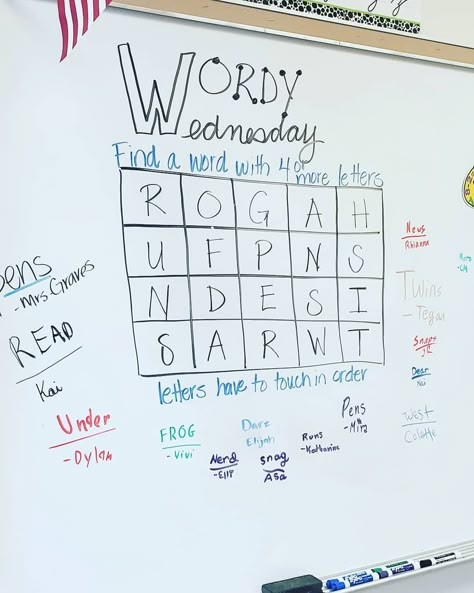 WORDY
Wednesday
Find a word with 4 or
more letters
R O G A H
U F P N S
N D E S I
S A R W T
letters have to touch in order
pens
- Mrs Graves
READ
Kai
Under
- Dylan
FROG
- Vivi
Dare
Elijah
Nerd
- Elli
snag
Asa
Runs
- Katharine
Pens
- Mila
News
Rhianna
Twins
- Tegan
Snaps
Dear
West
Colette